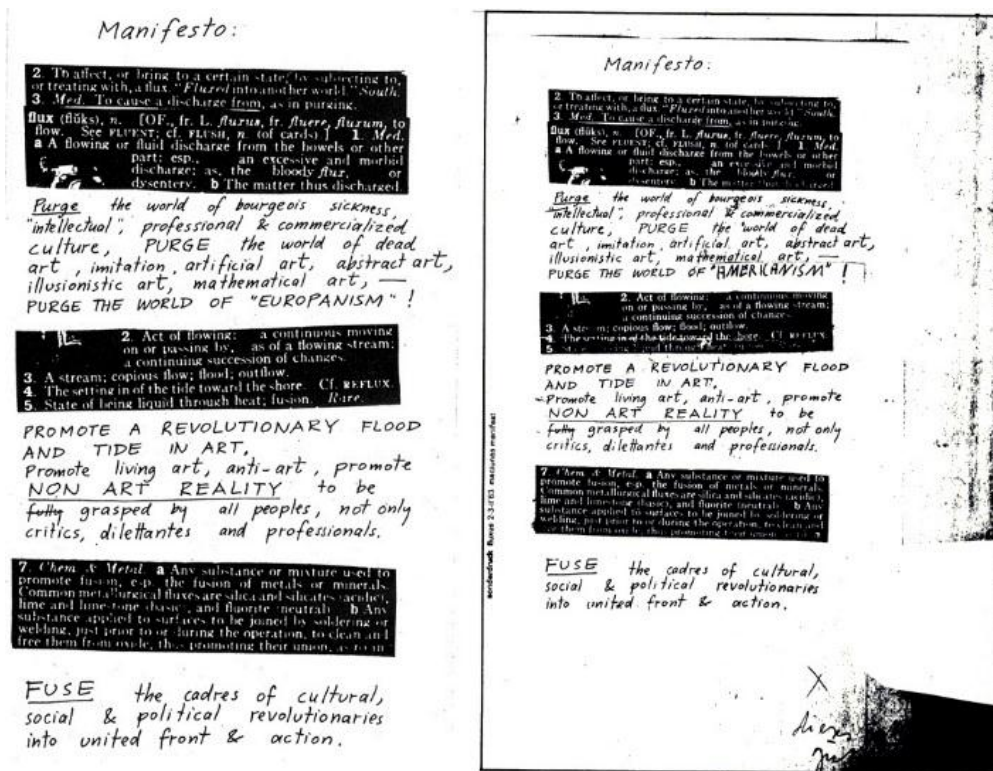 Manifesto:
2. To affect, or bring to a certain state, by subjecting to,
or treating with, a flux. "Fluxed into another world." South.
3. Med. To cause a discharge from, as in purging.
flux (flŭks), n. [OF., fr. L. fluxus, fr. fluere, fluxum, to
flow. See FLUENT; cf. FLUSH, n. (of cards).] 1. Med.
a A flowing or fluid discharge from the bowels or other
part; esp., an excessive and morbid
discharge; as, the bloody flux, or
dysentery. b The matter thus discharged.
Purge the world of bourgeois sickness,
"intellectual", professional & commercialized
culture, PURGE the world of dead
art, imitation, artificial art, abstract art,
illusionistic art, mathematical art, —
PURGE THE WORLD OF "EUROPANISM"!
2. Act of flowing: a continuous moving
on or passing by, as of a flowing stream;
a continuing succession of changes.
3. A stream; copious flow; flood; outflow.
4. The setting in of the tide toward the shore. Cf. REFLUX.
5. State of being liquid through heat; fusion. Rare.
PROMOTE A REVOLUTIONARY FLOOD
AND TIDE IN ART,
Promote living art, anti-art, promote
NON ART REALITY to be
fully grasped by all peoples, not only
critics, dilettantes and professionals.
7. Chem. & Metal. a Any substance or mixture used to
promote fusion, esp. the fusion of metals or minerals.
Common metallurgical fluxes are silica and silicates (acidic),
lime and limestone (basic), and fluorite (neutral). b Any
substance applied to surfaces to be joined by soldering or
welding, just prior to or during the operation, to clean and
free them from oxide, thus promoting their union, as rosin.
FUSE the cadres of cultural,
social & political revolutionaries
into united front & action.
Manifesto:
2. To affect, or bring to a certain state, by subjecting to,
or treating with, a flux. "Fluxed into another world." South.
3. Med. To cause a discharge from, as in purging.
flux (flŭks), n. [OF., fr. L. fluxus, fr. fluere, fluxum, to
flow. See FLUENT; cf. FLUSH, n. (of cards).] 1. Med.
a A flowing or fluid discharge from the bowels or other
part; esp., an excessive and morbid
discharge; as, the bloody flux, or
dysentery. b The matter thus discharged.
Purge the world of bourgeois sickness,
"intellectual", professional & commercialized
culture, PURGE the world of dead
art, imitation, artificial art, abstract art,
illusionistic art, mathematical art, —
PURGE THE WORLD OF "AMERICANISM"!
2. Act of flowing: a continuous moving
on or passing by, as of a flowing stream;
a continuing succession of changes.
3. A stream; copious flow; flood; outflow.
4. The setting in of the tide toward the shore. Cf. REFLUX.
5. State of being liquid through heat;
PROMOTE A REVOLUTIONARY FLOOD
AND TIDE IN ART,
Promote living art, anti-art, promote
NON ART REALITY to be
fully grasped by all peoples, not only
critics, dilettantes and professionals.
7. Chem. & Metal. a Any substance or mixture used to
promote fusion, esp. the fusion of metals or minerals.
Common metallurgical fluxes are silica and silicates (acidic),
lime and limestone (basic), and fluorite (neutral). b Any
substance applied to surfaces to be joined by soldering or
welding, just prior to or during the operation, to clean and
free them from oxide, thus promoting their union,
FUSE the cadres of cultural,
social & political revolutionaries
into united front & action.
sonderdruck fluxus 2-3-ii'63 maciunas manifest